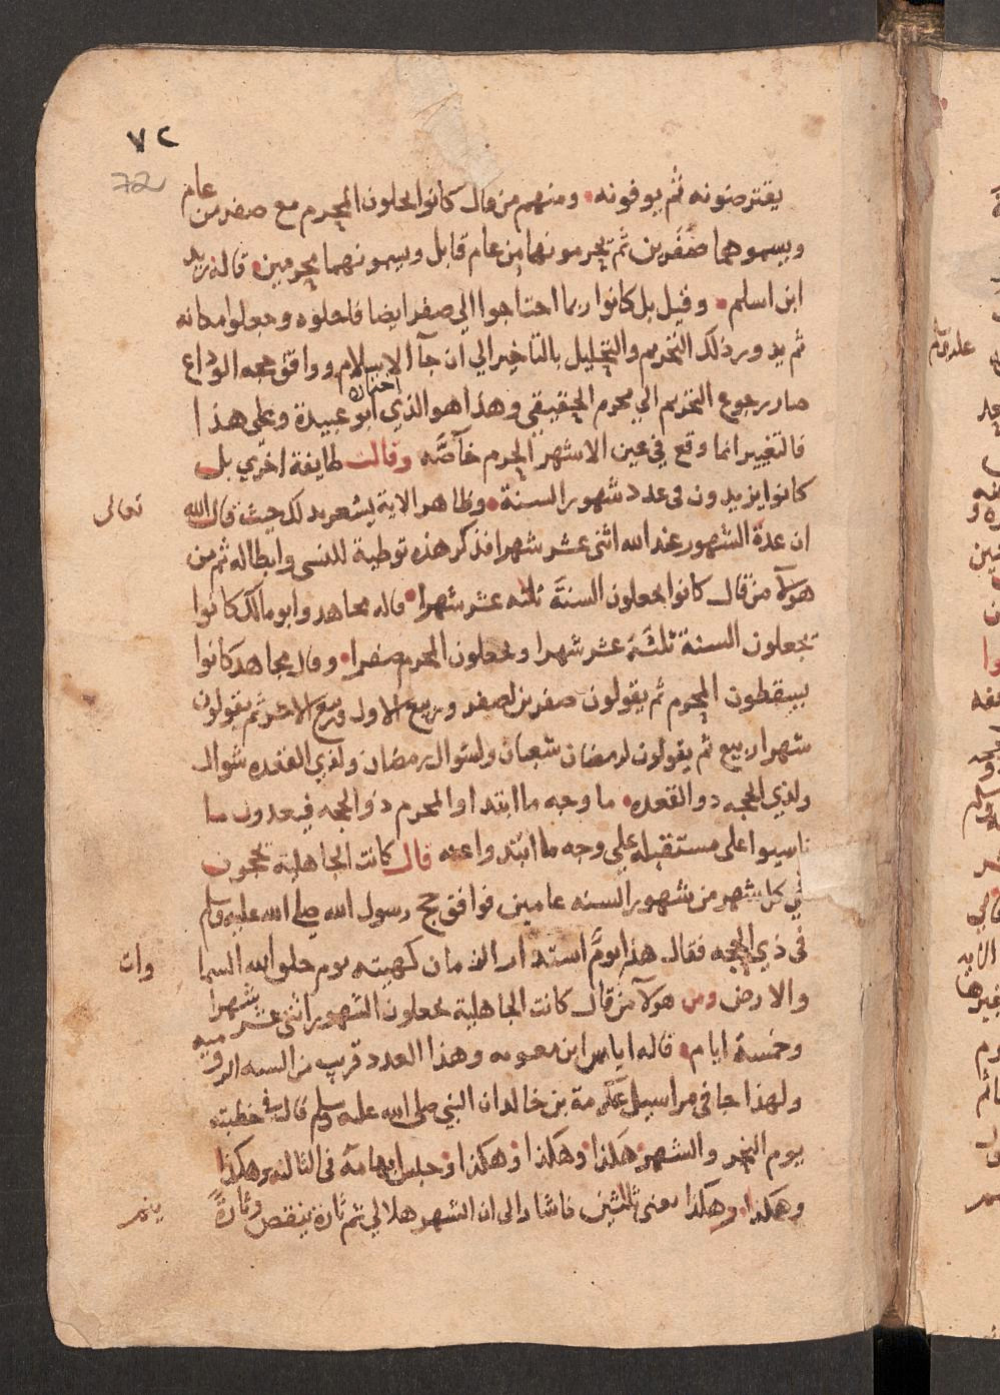 ٧٢
72
يقترضونه ثم يوفونه ومنهم من قال كانوا يحلون المحرم مع صفر من عام
ويسموهما صفرين ثم يحرمونهما من عام قابل ويسمونهما محرمين قاله زيد
ابن اسلم وقيل بل كانوا ربما احتاجوا الي صفر ايضا فاحلوه وجعلوا مكانه
ثم يدور ذلك التحريم والتحليل بالتاخير الي ان جآ الاسلام ووافق حجه الوداع
صار رجوع التحريم الي محرم الحقيقي وهذا هو الذي اختاره ابو عبيدة وعلي هذا
فالتغيير انما وقع في عين الاشهر الحرم خآصّه وقالت طايفة اخري بل
كانوا يزيدون في عدد شهور السنة وظاهر الاية يشعر بذلك حيث قال الله تعالى
ان عدة الشهور عند الله اثنى عشر شهرا فذكر هذه توطية للنسى وابطاله ثم من
هولآ من قال كانوا يجعلون السنة ثلثه عشر شهرا قاله مجاهد وابو مالك كانوا
يجعلون السنة ثلثَة عشر شهرا ويجعلون المحرم صفرا وقال مجاهد كانوا
يسقطون المحرم ثم يقولون صفرين لصفر وربيع الاول وربيع الاخر ثم يقولون
شهرا ربيع ثم يقولون لرمضان شعبان ولشوال رمضان ولذي القعده شوال
ولذي الحجه ذو القعده ما وجه ما ابتدا والمحرم ذو الحجه فيعدون ما
ناسيوا على مستقبله علي وجه ما ابتدوا عنه قال كانت الجاهلية يحجون
في كل شهر من شهور السنه عامين فوافق حج رسول الله صلي الله عليه وسلم
في ذي الحجه فقال هذا يومٌ استدار الزمان كهيته يوم خلق الله السما وات
والارض ومن هولآ من قال كانت الجاهلية يجعلون الشهور اثنى عشر شهرا
وخمسة ايام قاله اياس ابن معويه وهذا العدد قريب من السنه الروميه
ولهذا جا في مراسيل عكرمة بن خالد ان النبي صلى الله عليه وسلم قال في خطبته
يوم النحر والشهر هكذا وهكذا وهكذا وحبس ابهامه في الثالثه وهكذا
وهكذا وهكذا يعنى ثلاثين فاشار الي ان الشهر هلالي ثم تارة ينقص وتارةً يتم